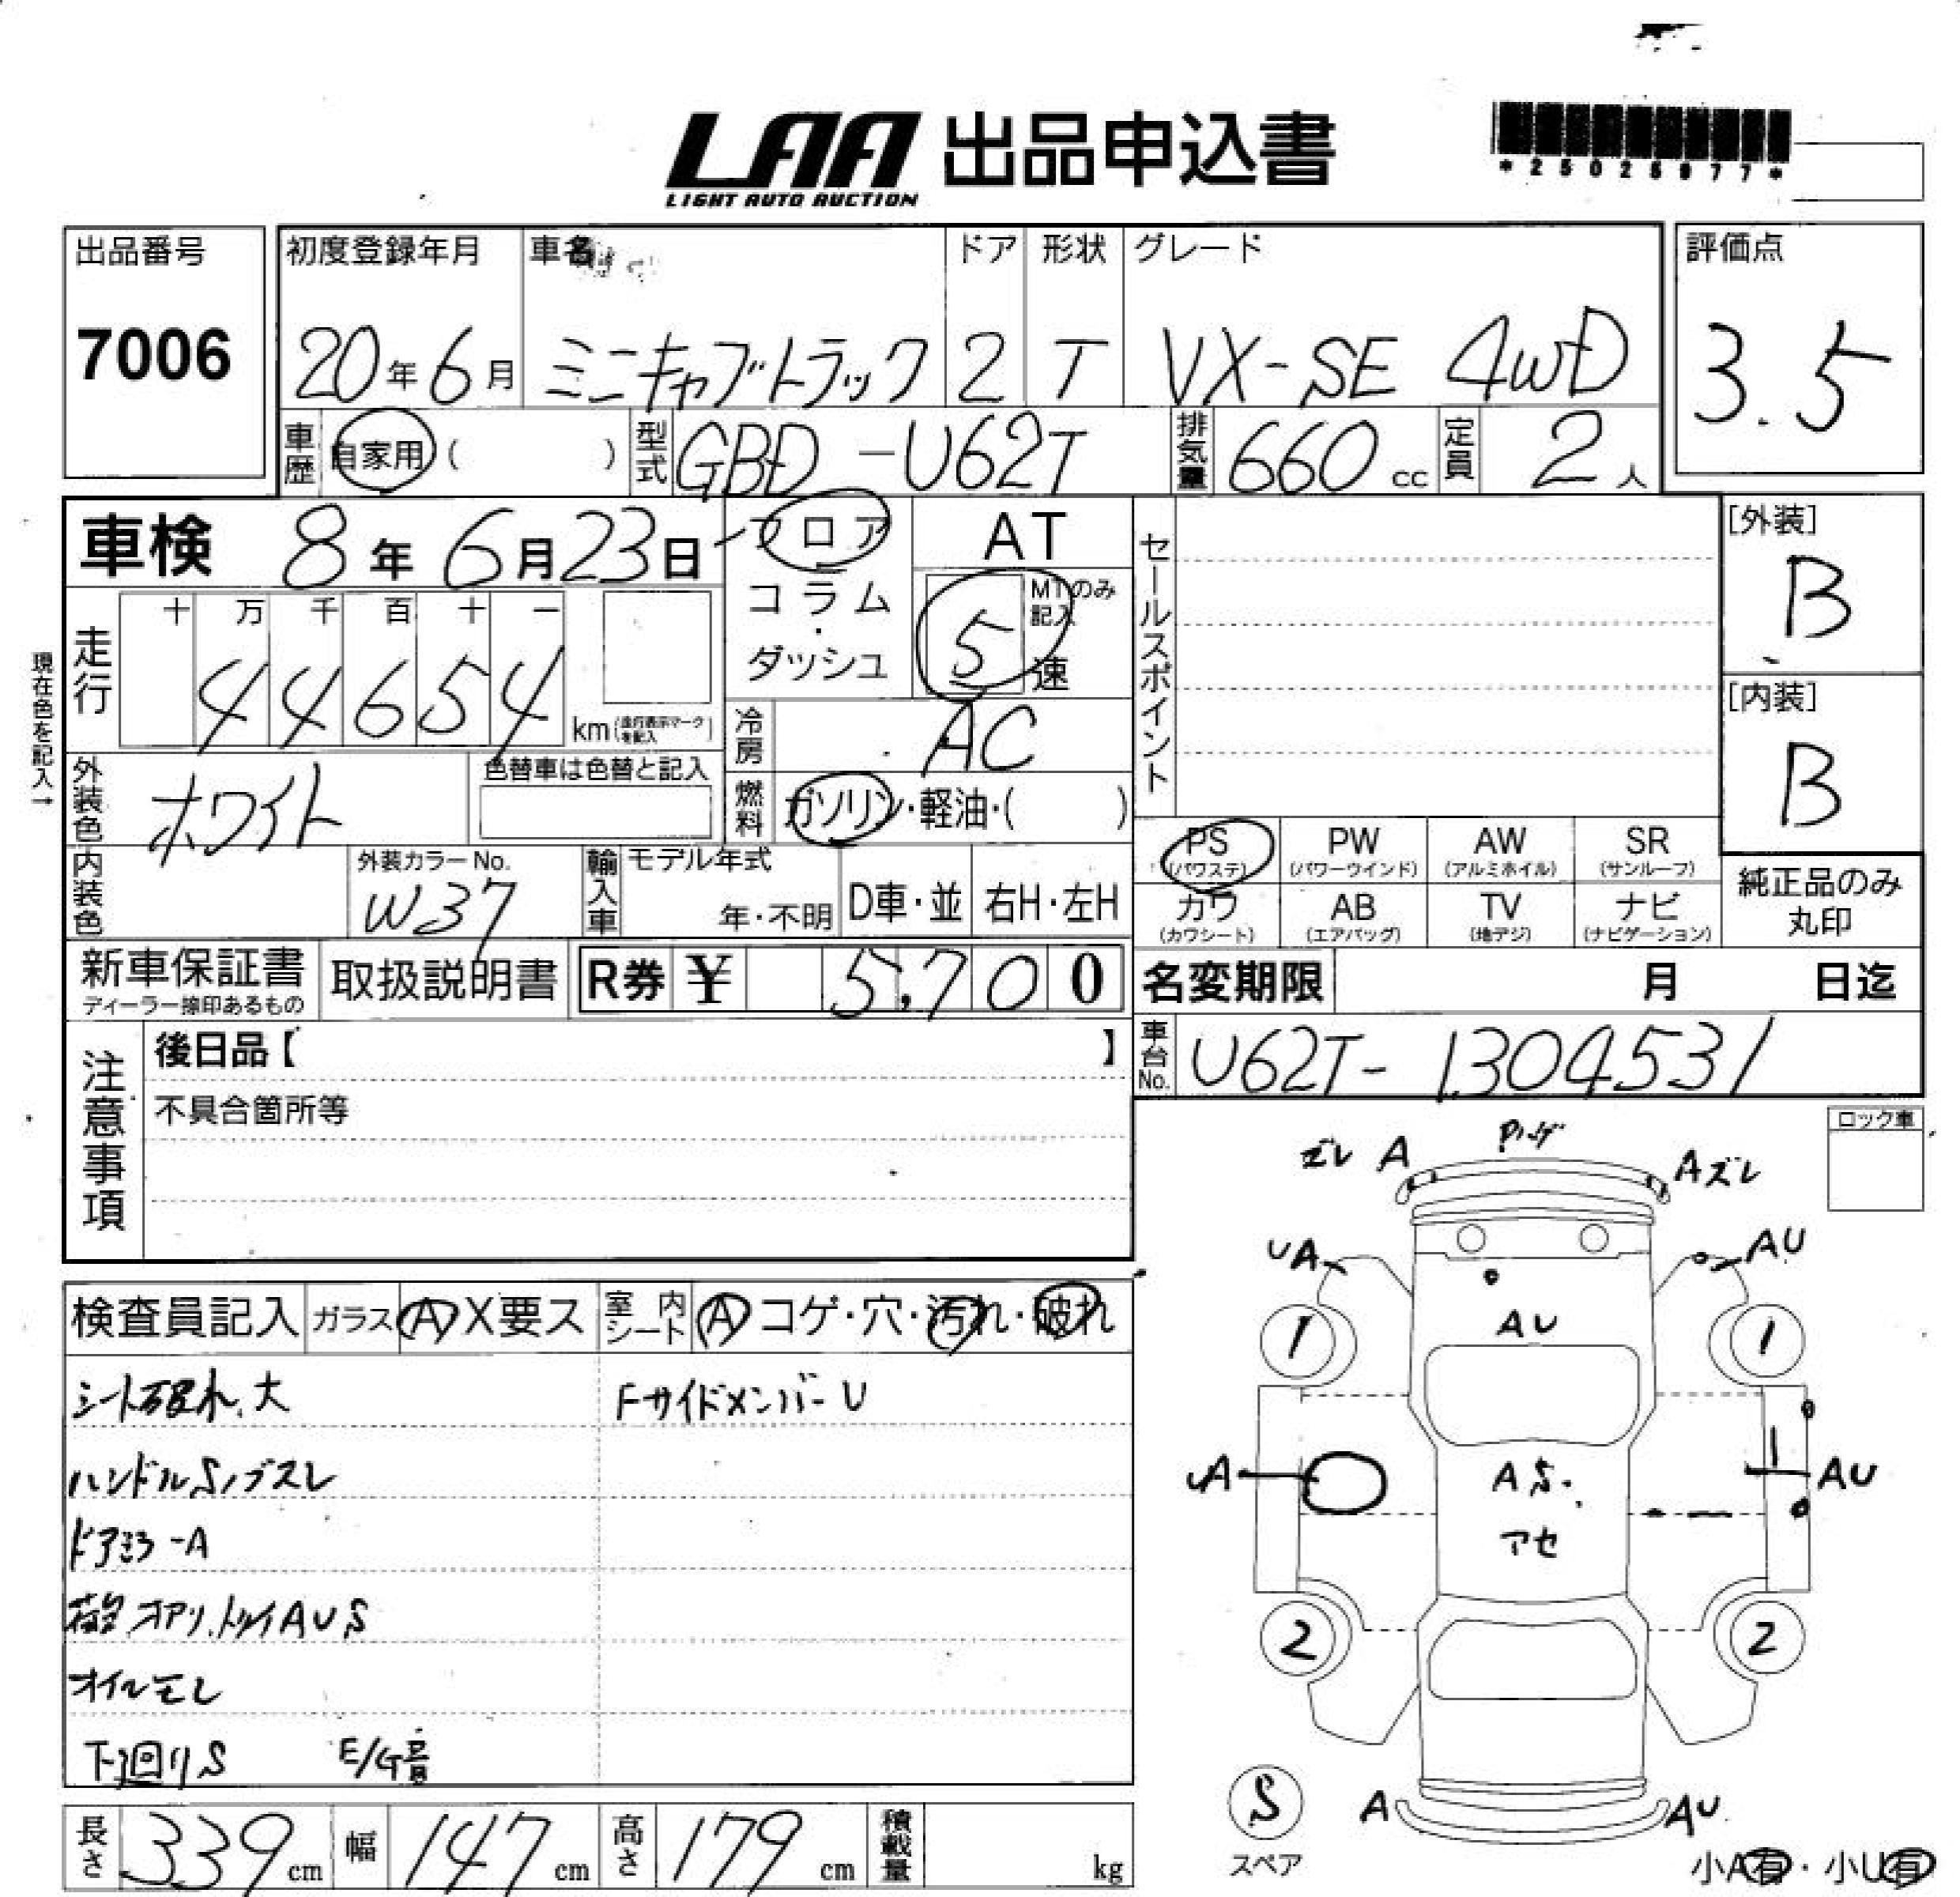 LAA 出品申込書
LIGHT AUTO AUCTION
*25025977*
出品番号 7006
初度登録年月 20年6月
車名 ミニキャブトラック
ドア 2
形状 T
グレード VX-SE 4WD
評価点 3.5
車歴 自家用( )
型式 GBD-U62T
排気量 660 cc
定員 2人
車検 8年6月23日
フロア
コラム・
ダッシュ
AT
MTのみ記入
5速
セールスポイント
[外装] B
[内装] B
現在色を記入→
走行 十万千百十一
44654 km(走行表示マークを記入)
冷房 AC
外装色 ホワイト
色替車は色替と記入
燃料 ガソリン・軽油・( )
内装色
外装カラーNo. W37
輸入車
モデル年式
年・不明
D車・並
右H・左H
PS (パワステ)
PW (パワーウインド)
AW (アルミホイル)
SR (サンルーフ)
カワ (カワシート)
AB (エアバッグ)
TV (地デジ)
ナビ (ナビゲーション)
純正品のみ
丸印
新車保証書
ディーラー捺印あるもの
取扱説明書
R券 ¥ 5,700
名変期限 月 日迄
注意事項
後日品【 】
不具合箇所等
車台No. U62T-1304531
ロック車
ズレ A
ハゲ
A ズレ
UA
AU
AU
1
1
UA
A S.
アセ
AU
2
2
S
スペア
A
AU
小A有・小U有
検査員記入 ガラス A X要ス 室内シート A コゲ・穴・汚れ・破れ
シート破れ大
Fサイドメンバー U
ハンドルSノブスレ
ドアミラーA
荷室 オアリ.トリイAUS
オイルモレ
下廻りS E/G音
長さ 339cm
幅 147cm
高さ 179cm
積載量 kg